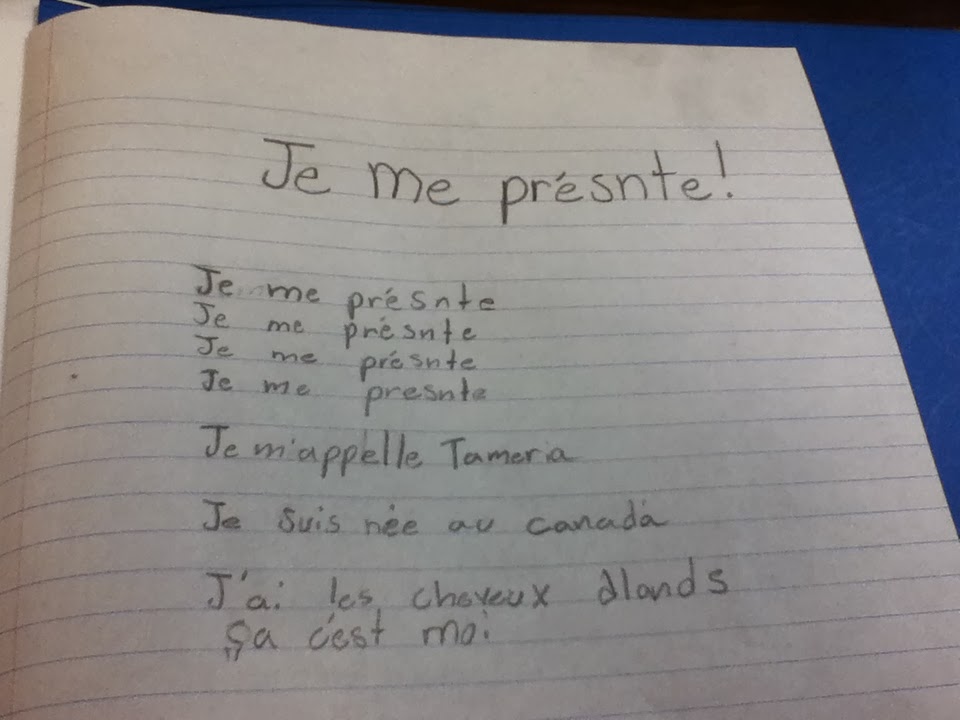 Je me présnte!
Je me présnte
Je me présnte
Je me présnte
Je me presnte
Je m'appelle Tameria
Je suis née au canada
J'ai les cheveux dlonds
ça c'est moi